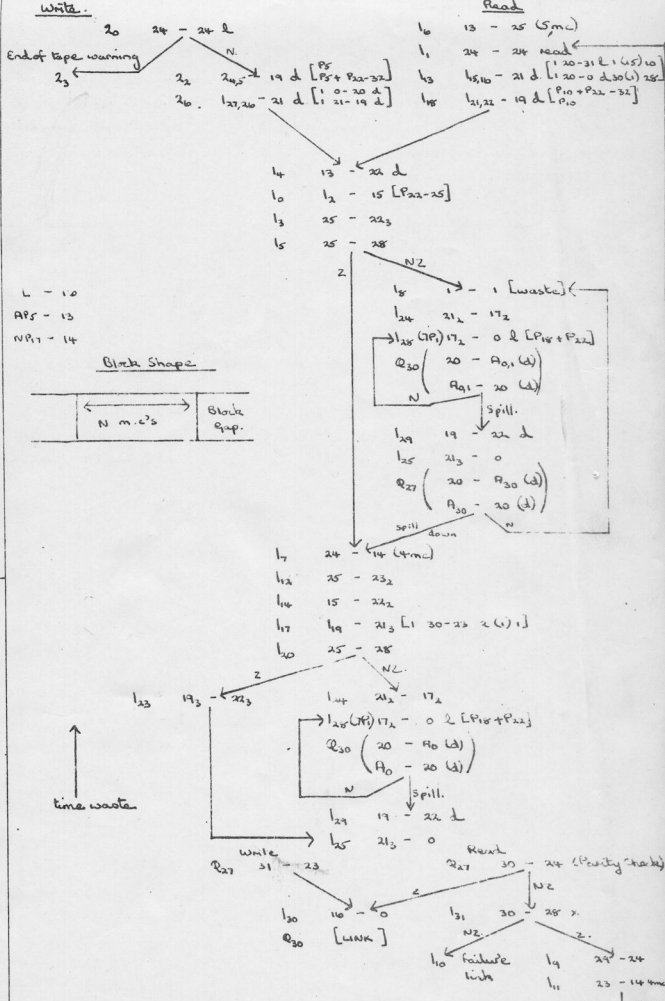 Write.
2₀ 24 - 24 l
End of tape warning
N.
2₃
2₂ 2₄,₅ - 19 d [P5 P5 + P22-32]
2₆. 1₂₇,₂₆ - 21 d [1 0-20 d 1 21-19 d]
Read
1₆ 13 - 25 (5mc)
1₁ 24 - 24 read
1₁₃ 1₁₅,₁₆ - 21 d [1 20-31 l 1 (15) 10 1 20-0 d 30 (1) 28]
1₁₈ 1₂₁,₂₂ - 19 d [P10 + P22 - 32 P10]
1₄ 13 - 22 d
1₀ 1₂ - 15 [P22-25]
1₃ 25 - 22₃
1₅ 25 - 28
Z
NZ
L - 10
AP5 - 13
NP17 - 14
Block Shape
N m.c's
Block Gap.
1₈ 1 - 1 [waste]
1₂₄ 21₂ - 17₂
1₂₈ (7P1) 17₂ - 0 l [P18 + P22]
Q30 (20 - A0,1 (d)
A0,1 - 20 (d))
N
Spill.
1₂₉ 19 - 22 d
1₂₅ 21₃ - 0
Q27 (20 - A30 (d)
A30 - 20 (d))
Spill down
N
1₇ 24 - 14 (4mc)
1₁₂ 25 - 23₂
1₁₄ 15 - 22₂
1₁₇ 1₁₉ - 21₃ [1 30-23 2 (1) 1]
1₂₀ 25 - 28
Z
NZ.
1₂₃ 19₃ - 22₃
1₂₄ 21₂ - 17₂
1₂₈ (7P1) 17₂ - 0 l [P18 + P22]
Q30 (20 - A0 (d)
A0 - 20 (d))
N
Spill.
time waste
1₂₉ 19 - 22 d
1₂₅ 21₃ - 0
Write
Q27 31 - 23
Read
Q27 30 - 24 (Parity Check)
Z
NZ
1₃₀ 16 - 0
Q30 [LINK]
1₃₁ 30 - 28 x.
NZ.
Z.
1₁₀ Failure link
1₉ 29 - 24
1₁₁ 23 - 14 4mc